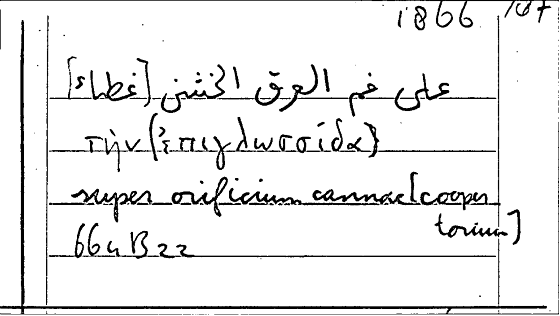 1866
على فم العرق الخشن [غطاء]
τὴν (ἐπιγλωσσίδα)
super orificium cannae [cooper
torium]
664 B 22